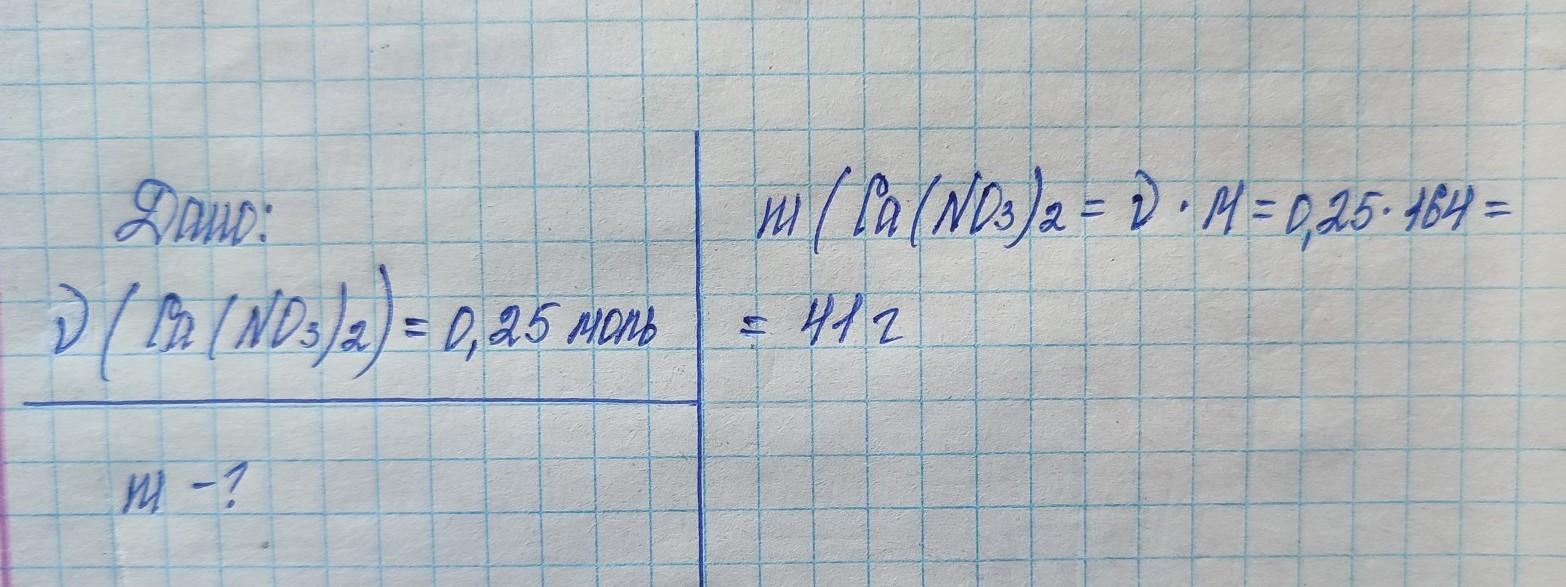 Дано:
ν(Ca(NO3)2) = 0,25 моль
m - ?
m(Ca(NO3)2 = ν · M = 0,25 · 164 =
= 41 г